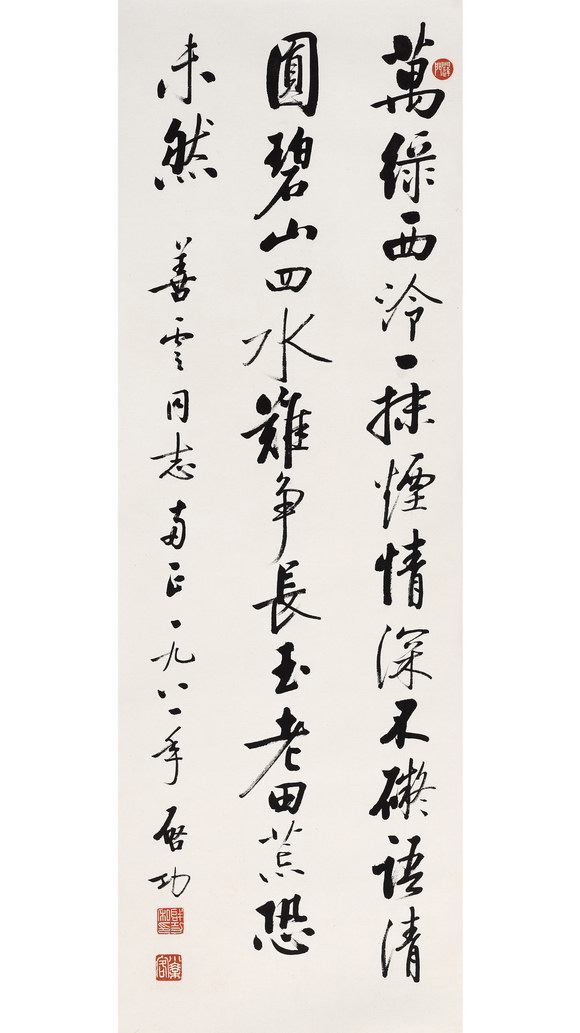 萬綠西泠一抹煙情深不礙語清
圓碧山四水難爭長玉老田荒恐
未然 善雲同志正一九八一年 啓功